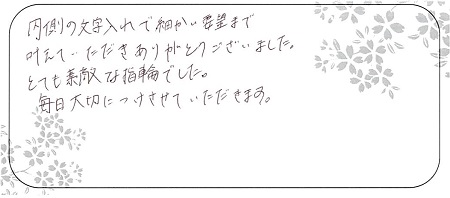 内側の文字入れで細かい要望まで
叶えていただきありがとうございました。
とても素敵な指輪でした。
毎日大切につけさせていただきます。